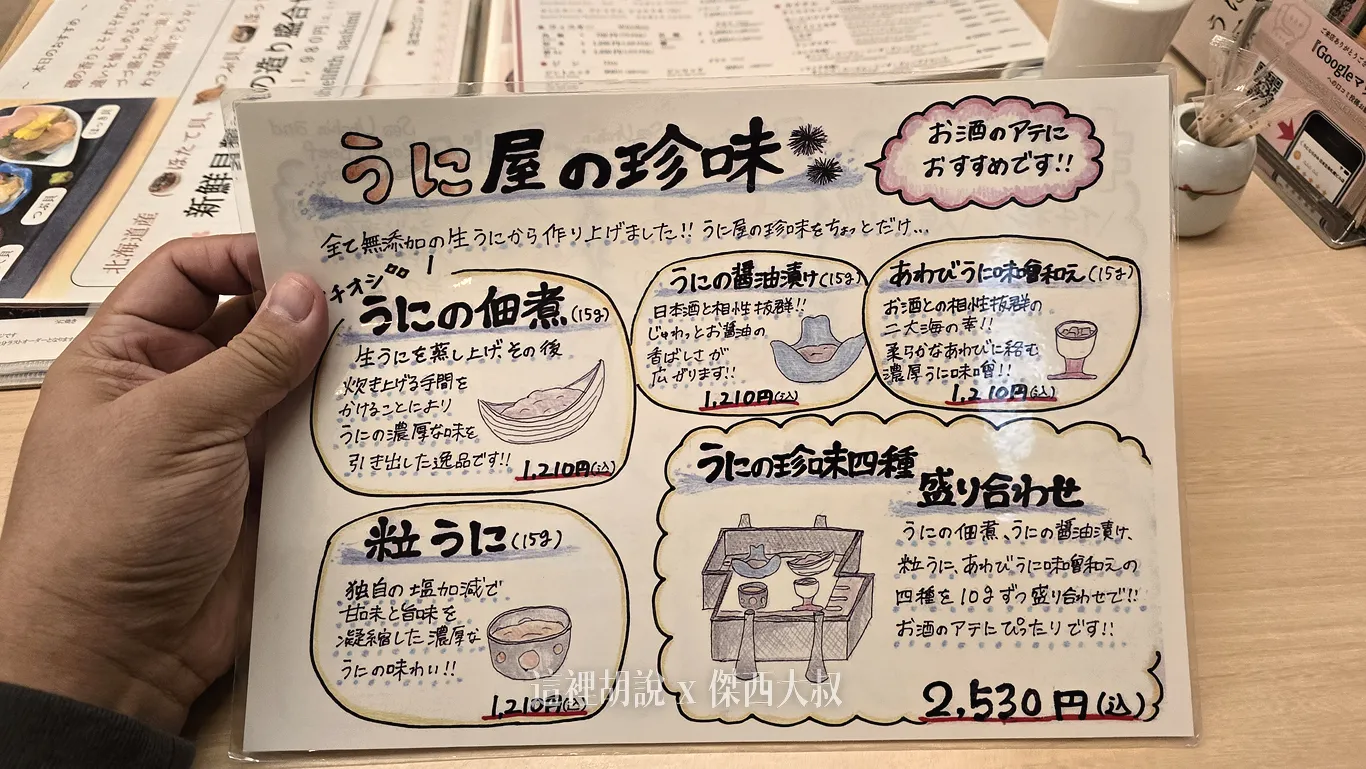 うに屋の珍味
お酒のアテに
おすすめです!!
全て無添加の生うにから作り上げました!! うに屋の珍味をちょっとだけ…
イチオシ!!
うにの佃煮(15g)
生うにを蒸し上げ、その後
炊き上げる手間を
かけることにより
うにの濃厚な味を
引き出した逸品です!!
1,210円(込)
うにの醤油漬け(15g)
日本酒と相性抜群!!
じゅわっとお醤油の
香ばしさが
広がります!!
1,210円(込)
あわびうに味噌和え(15g)
お酒との相性抜群の
二大海の幸!!
柔らかなあわびに絡む
濃厚うに味噌!!
1,210円(込)
粒うに(15g)
独自の塩加減で
甘味と旨味を
凝縮した濃厚な
うにの味わい!!
1,210円(込)
うにの珍味四種
盛り合わせ
うにの佃煮、うにの醤油漬け、
粒うに、あわびうに味噌和えの
四種を10gずつ盛り合わせで!!
お酒のアテにぴったりです!!
2,530円(込)
這裡胡說 x 傑西大叔
本日のおすすめ
北海道産
ほたて貝
つぶ貝
ほっき貝
『Googleマ